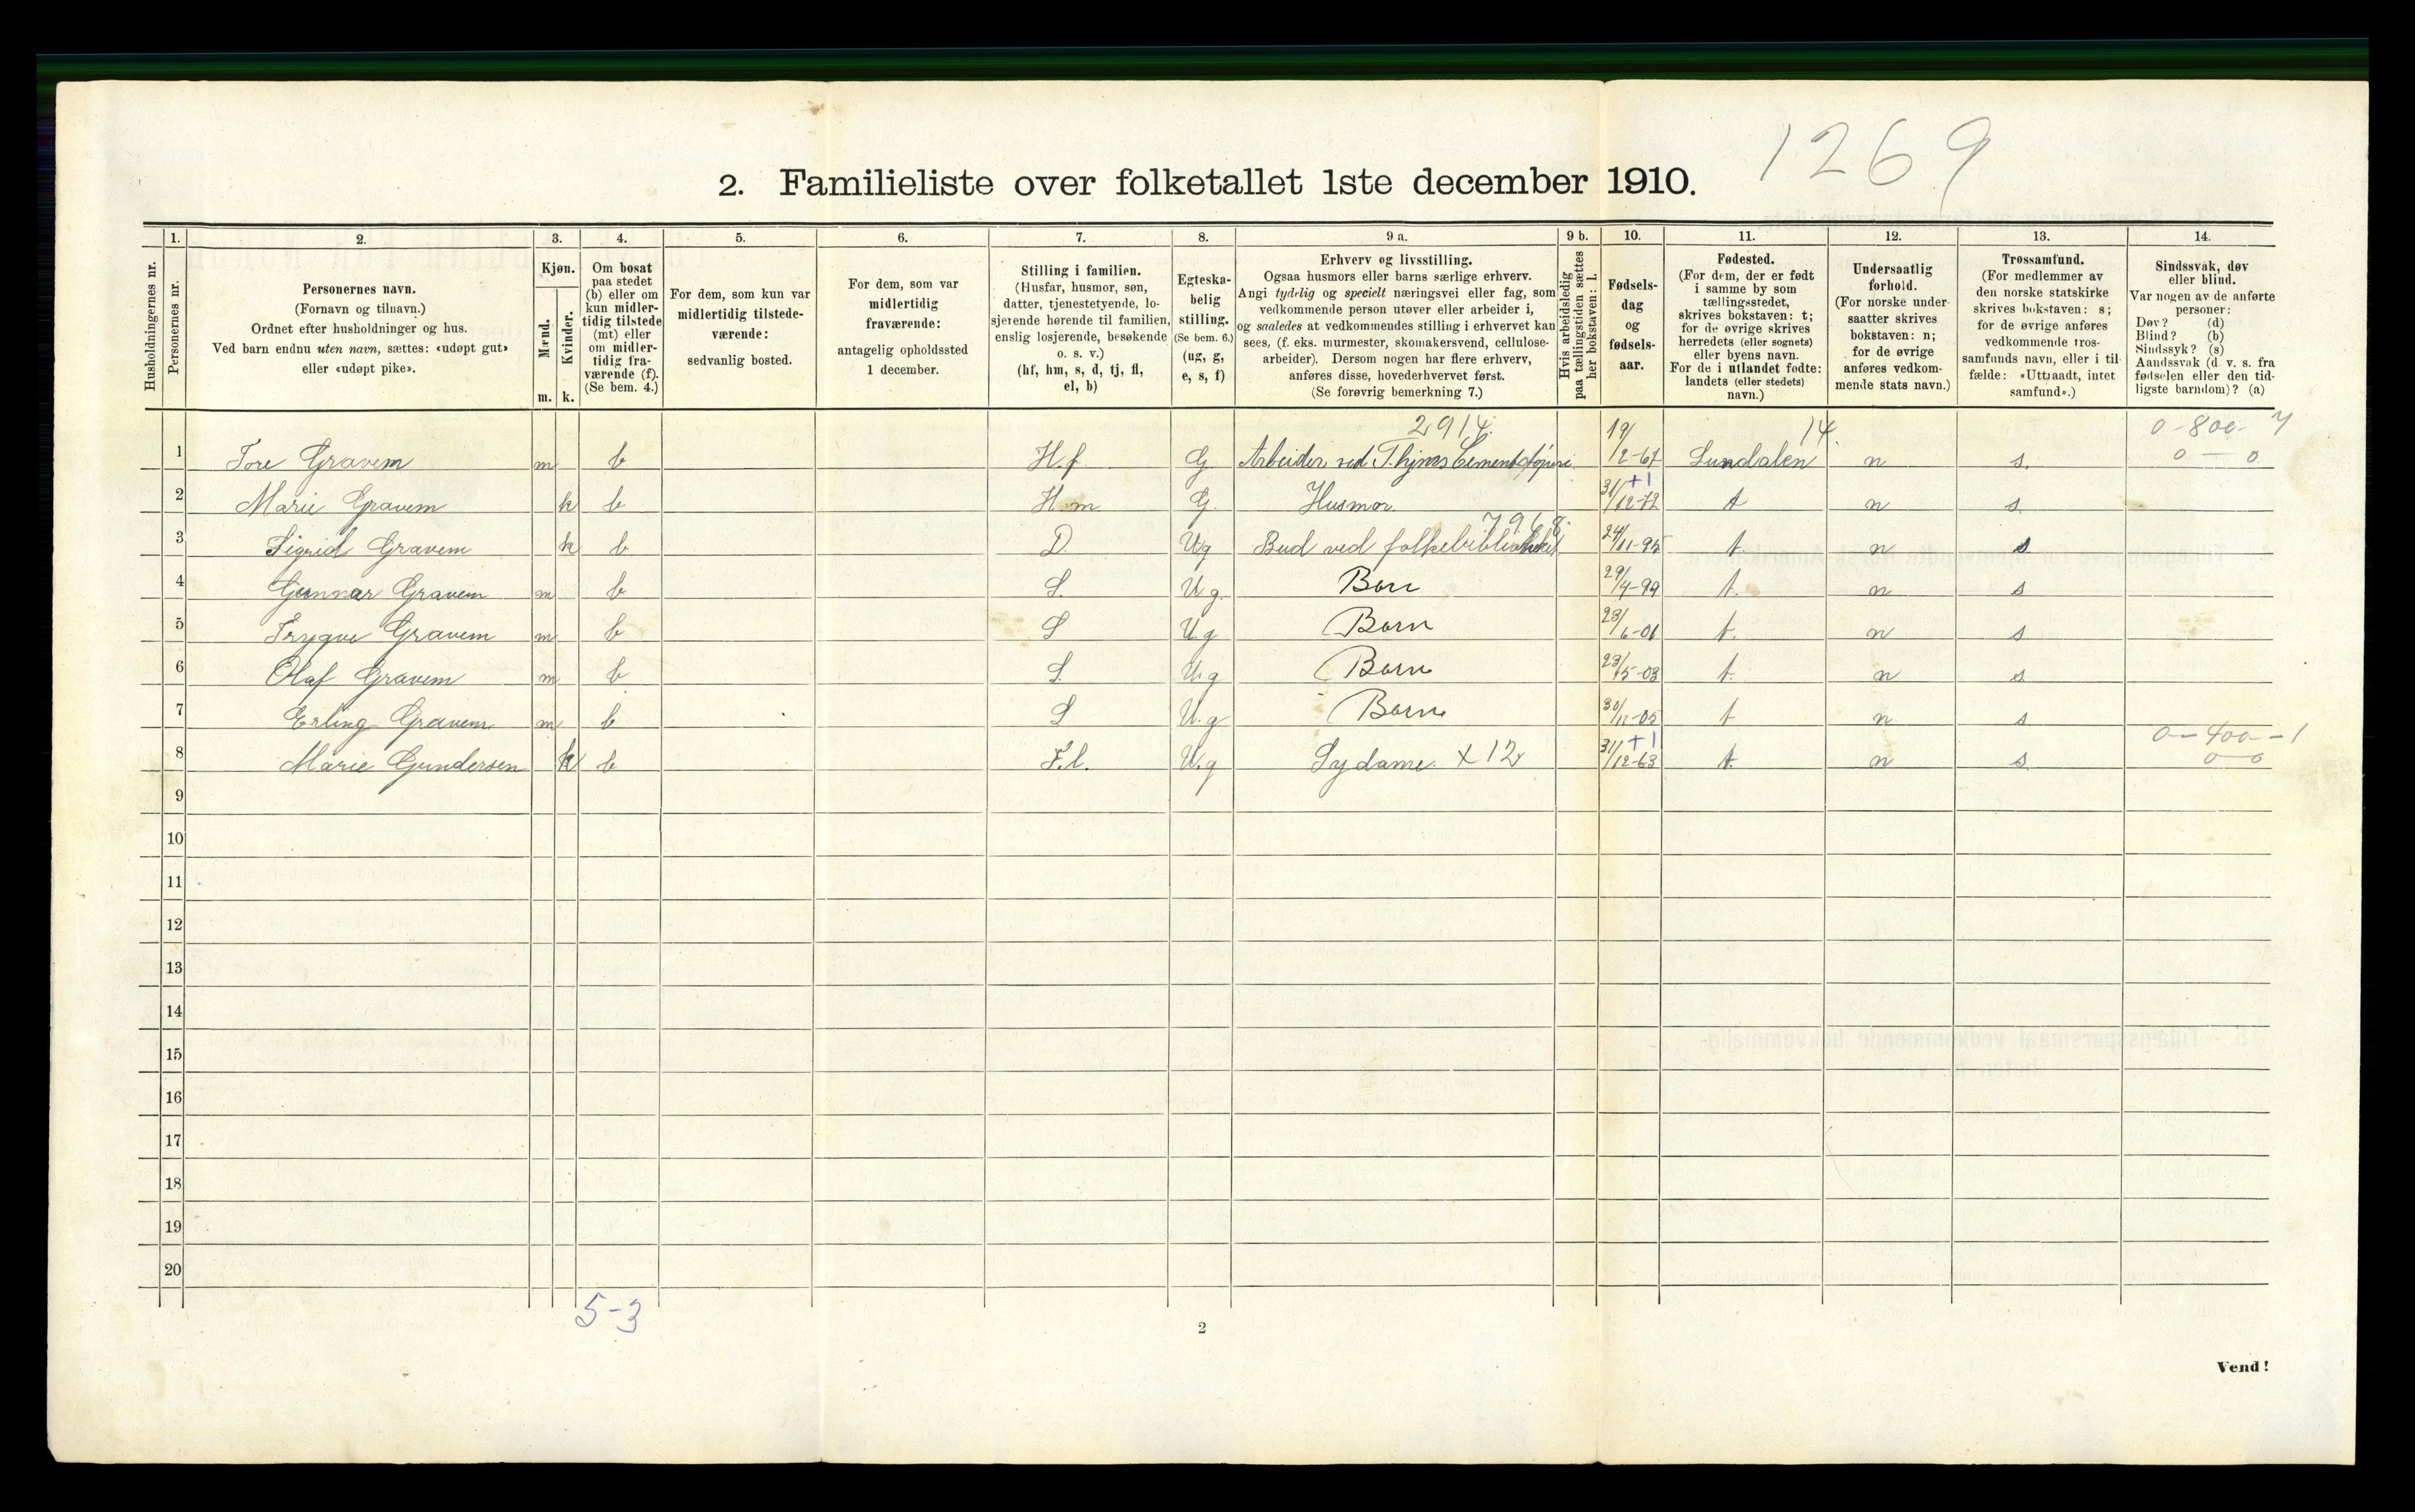 1269
2. Familieliste over folketallet 1ste december 1910.
Husholdningernes nr.
1. Personernes nr.
2. Personernes navn.
(Fornavn og tilnavn.)
Ordnet efter husholdninger og hus.
Ved barn endnu uten navn, sættes: «udøpt gut»
eller «udøpt pike».
3. Kjøn.
Mænd. m.
Kvinder. k.
4. Om bosat
paa stedet
(b) eller om
kun midler-
tidig tilstede
(mt) eller
om midler-
tidig fra-
værende (f).
(Se bem. 4.)
5. For dem, som kun var
midlertidig tilstede-
værende:
sedvanlig bosted.
6. For dem, som var
midlertidig
fraværende:
antagelig opholdssted
1 december.
7. Stilling i familien.
(Husfar, husmor, søn,
datter, tjenestetyende, lo-
sjerende hørende til familien,
enslig losjerende, besøkende
o. s. v.)
(hf, hm, s, d, tj, fl,
el, b)
8. Egteska-
belig
stilling.
(Se bem. 6.)
(ug, g,
e, s, f)
9 a. Erhverv og livsstilling.
Ogsaa husmors eller barns særlige erhverv.
Angi tydelig og specielt næringsvei eller fag, som
vedkommende person utøver eller arbeider i,
og saaledes at vedkommendes stilling i erhvervet kan
sees, (f. eks. murmester, skomakersvend, cellulose-
arbeider). Dersom nogen har flere erhverv,
anføres disse, hovederhvervet først.
(Se forøvrig bemerkning 7.)
9 b. Hvis arbeidsledig
paa tællingstiden sættes
her bokstaven: l.
10. Fødsels-
dag
og
fødsels-
aar.
11. Fødested.
(For dem, der er født
i samme by som
tællingsstedet,
skrives bokstaven: t;
for de øvrige skrives
herredets (eller sognets)
eller byens navn.
For de i utlandet fødte:
landets (eller stedets)
navn.)
12. Undersaatlig
forhold.
(For norske under-
saatter skrives
bokstaven: n;
for de øvrige
anføres vedkom-
mende stats navn.)
13. Trossamfund.
(For medlemmer av
den norske statskirke
skrives bokstaven: s;
for de øvrige anføres
vedkommende tros-
samfunds navn, eller i til-
fælde: «Uttraadt, intet
samfund».)
14. Sindssvak, døv
eller blind.
Var nogen av de anførte
personer:
Døv? (d)
Blind? (b)
Sindssyk? (s)
Aandssvak (d. v. s. fra
fødselen eller den tid-
ligste barndom)? (a)
2914. 14. 0-800- 7
1 Tore Gravem m b H.f. G Arbeider ved Thjms Cementstøperi 19/12-67 Sundalen n s. 0 — 0
2 Marie Gravem k b H.m. G. Husmor. 31/12-72 +1 t n s.
7968.
3 Sigrid Gravem k b D. Ug Bud ved folkebibliotheket 24/11-95 t. n s
4 Gunnar Gravem m b S. U.g. Barn 29/4-99 t. n s
5 Trygve Gravem m b S U.g Barn 28/6-01 t. n s
6 Olaf Gravem m b S. U.g Barn 23/5-03 t. n s
7 Erling Gravem m b S U.g Barn 30/11-05 t n. s
0-400-1
8 Marie Gundersen k b F.l. U.g Sydame. x 12 31/12-63 +1 t. n s. 0-0
9
10
11
12
13
14
15
16
17
18
19
20
5-3
2
Vend!